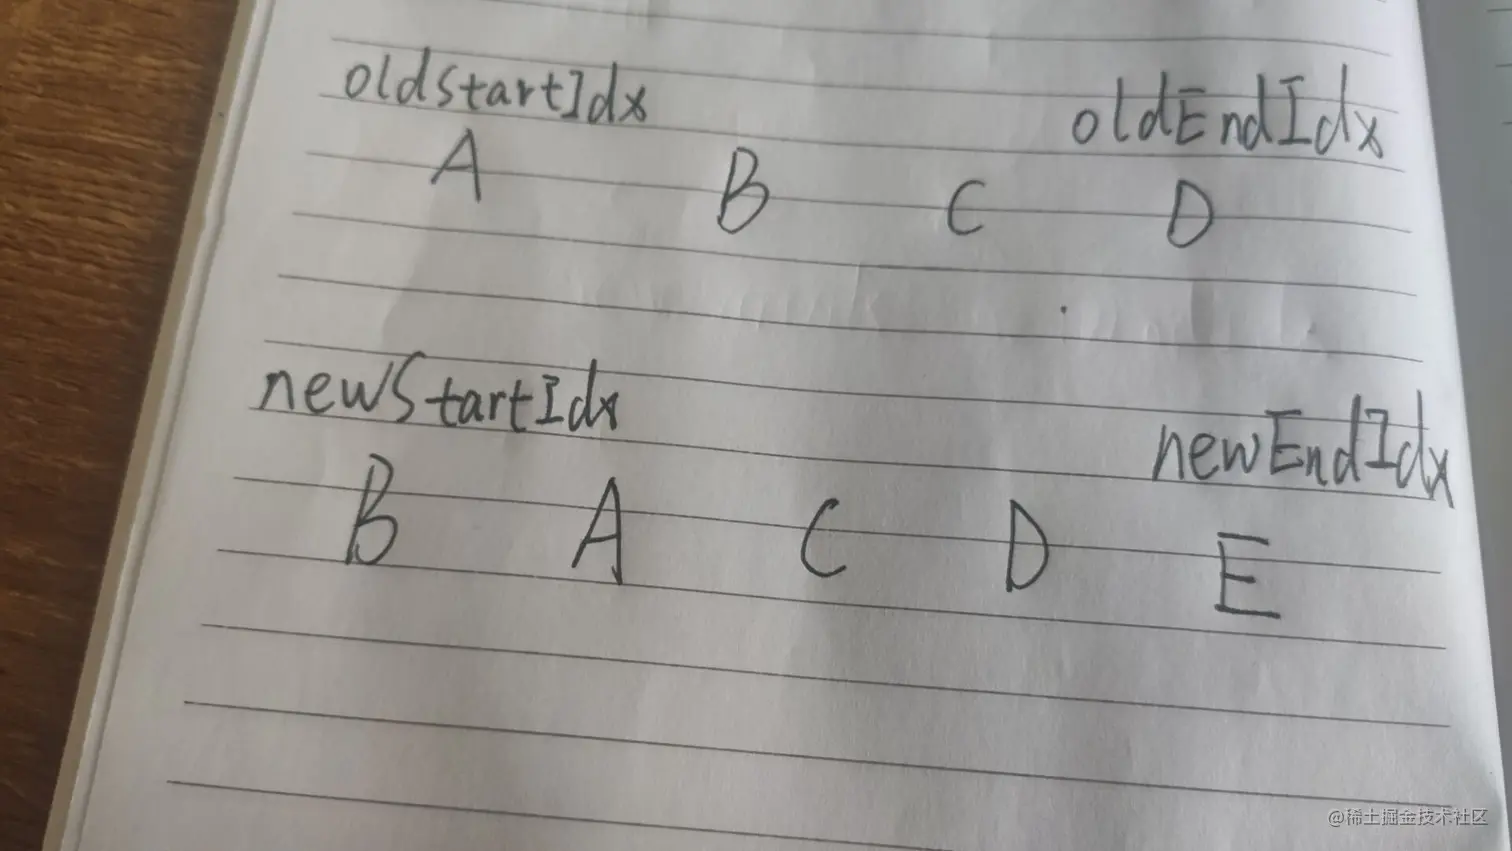 oldStartIdx oldEndIdx
A B C D
newStartIdx newEndIdx
B A C D E
@稀土掘金技术社区